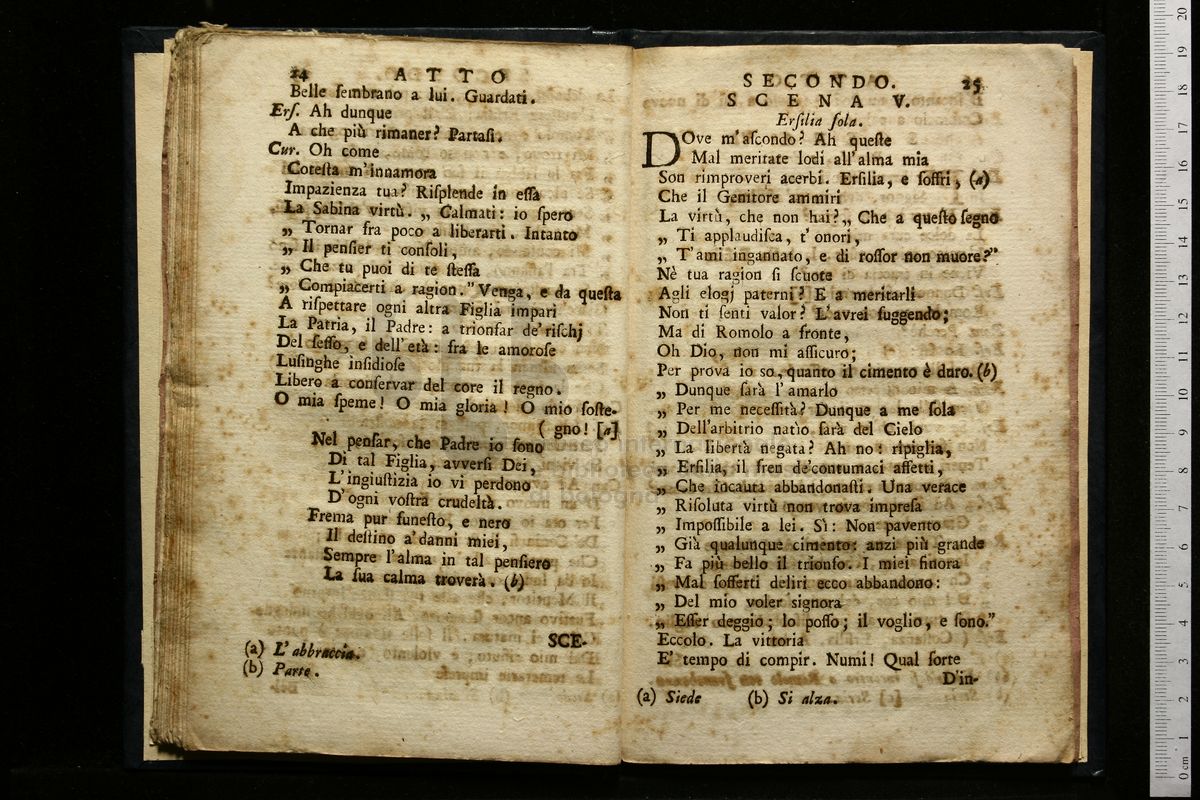 24 ATTO
Belle ſembrano a lui. Guardati.
Erſ. Ah dunque
A che più rimaner? Partaſi.
Cur. Oh come
Coteſta m'innamora
Impazienza tua? Riſplende in eſſa
La Sabina virtù. „ Calmati: io ſpero
„ Tornar fra poco a liberarti. Intanto
„ Il penſier ti conſoli,
„ Che tu puoi di te ſteſſa
„ Compiacerti a ragion." Venga, e da queſta
A riſpettare ogni altra Figlia impari
La Patria, il Padre: a trionfar de'riſchj
Del ſeſſo, e dell'età: fra le amoroſe
Luſinghe inſidioſe
Libero a conſervar del core il regno.
O mia ſpeme! O mia gloria! O mio ſoſte-
( gno! [a]
Nel penſar, che Padre io ſono
Di tal Figlia, avverſi Dei,
L'ingiuſtizia io vi perdono
D'ogni voſtra crudeltà.
Frema pur funeſto, e nero
Il deſtino a'danni miei,
Sempre l'alma in tal penſiero
La ſua calma troverà. (b)
SCE-
(a) L'abbraccia.
(b) Parte.
SECONDO. 25
SCENA V.
Erſilia ſola.
DOve m'aſcondo? Ah queſte
Mal meritate lodi all'alma mia
Son rimproveri acerbi. Erſilia, e ſoffri, (a)
Che il Genitore ammiri
La virtù, che non hai? „ Che a queſto ſegno
„ Ti applaudiſca, t'onori,
„ T'ami ingannato, e di roſſor non muore?"
Nè tua ragion ſi ſcuote
Agli elogj paterni? E a meritarli
Non ti ſenti valor? L'avrei fuggendo;
Ma di Romolo a fronte,
Oh Dio, non mi aſſicuro;
Per prova io so, quanto il cimento è duro. (b)
„ Dunque ſarà l'amarlo
„ Per me neceſſità? Dunque a me ſola
„ Dell'arbitrio natìo ſarà del Cielo
„ La libertà negata? Ah no: ripiglia,
„ Erſilia, il fren de'contumaci affetti,
„ Che incauta abbandonaſti. Una verace
„ Riſoluta virtù non trova impreſa
„ Impoſſibile a lei. Sì: Non pavento
„ Già qualunque cimento: anzi più grande
„ Fa più bello il trionfo. I miei finora
„ Mal ſofferti deliri ecco abbandono:
„ Del mio voler signora
„ Eſſer deggio; lo poſſo; il voglio, e ſono."
Eccolo. La vittoria
E' tempo di compir. Numi! Qual ſorte
D'in-
(a) Siede (b) Si alza.